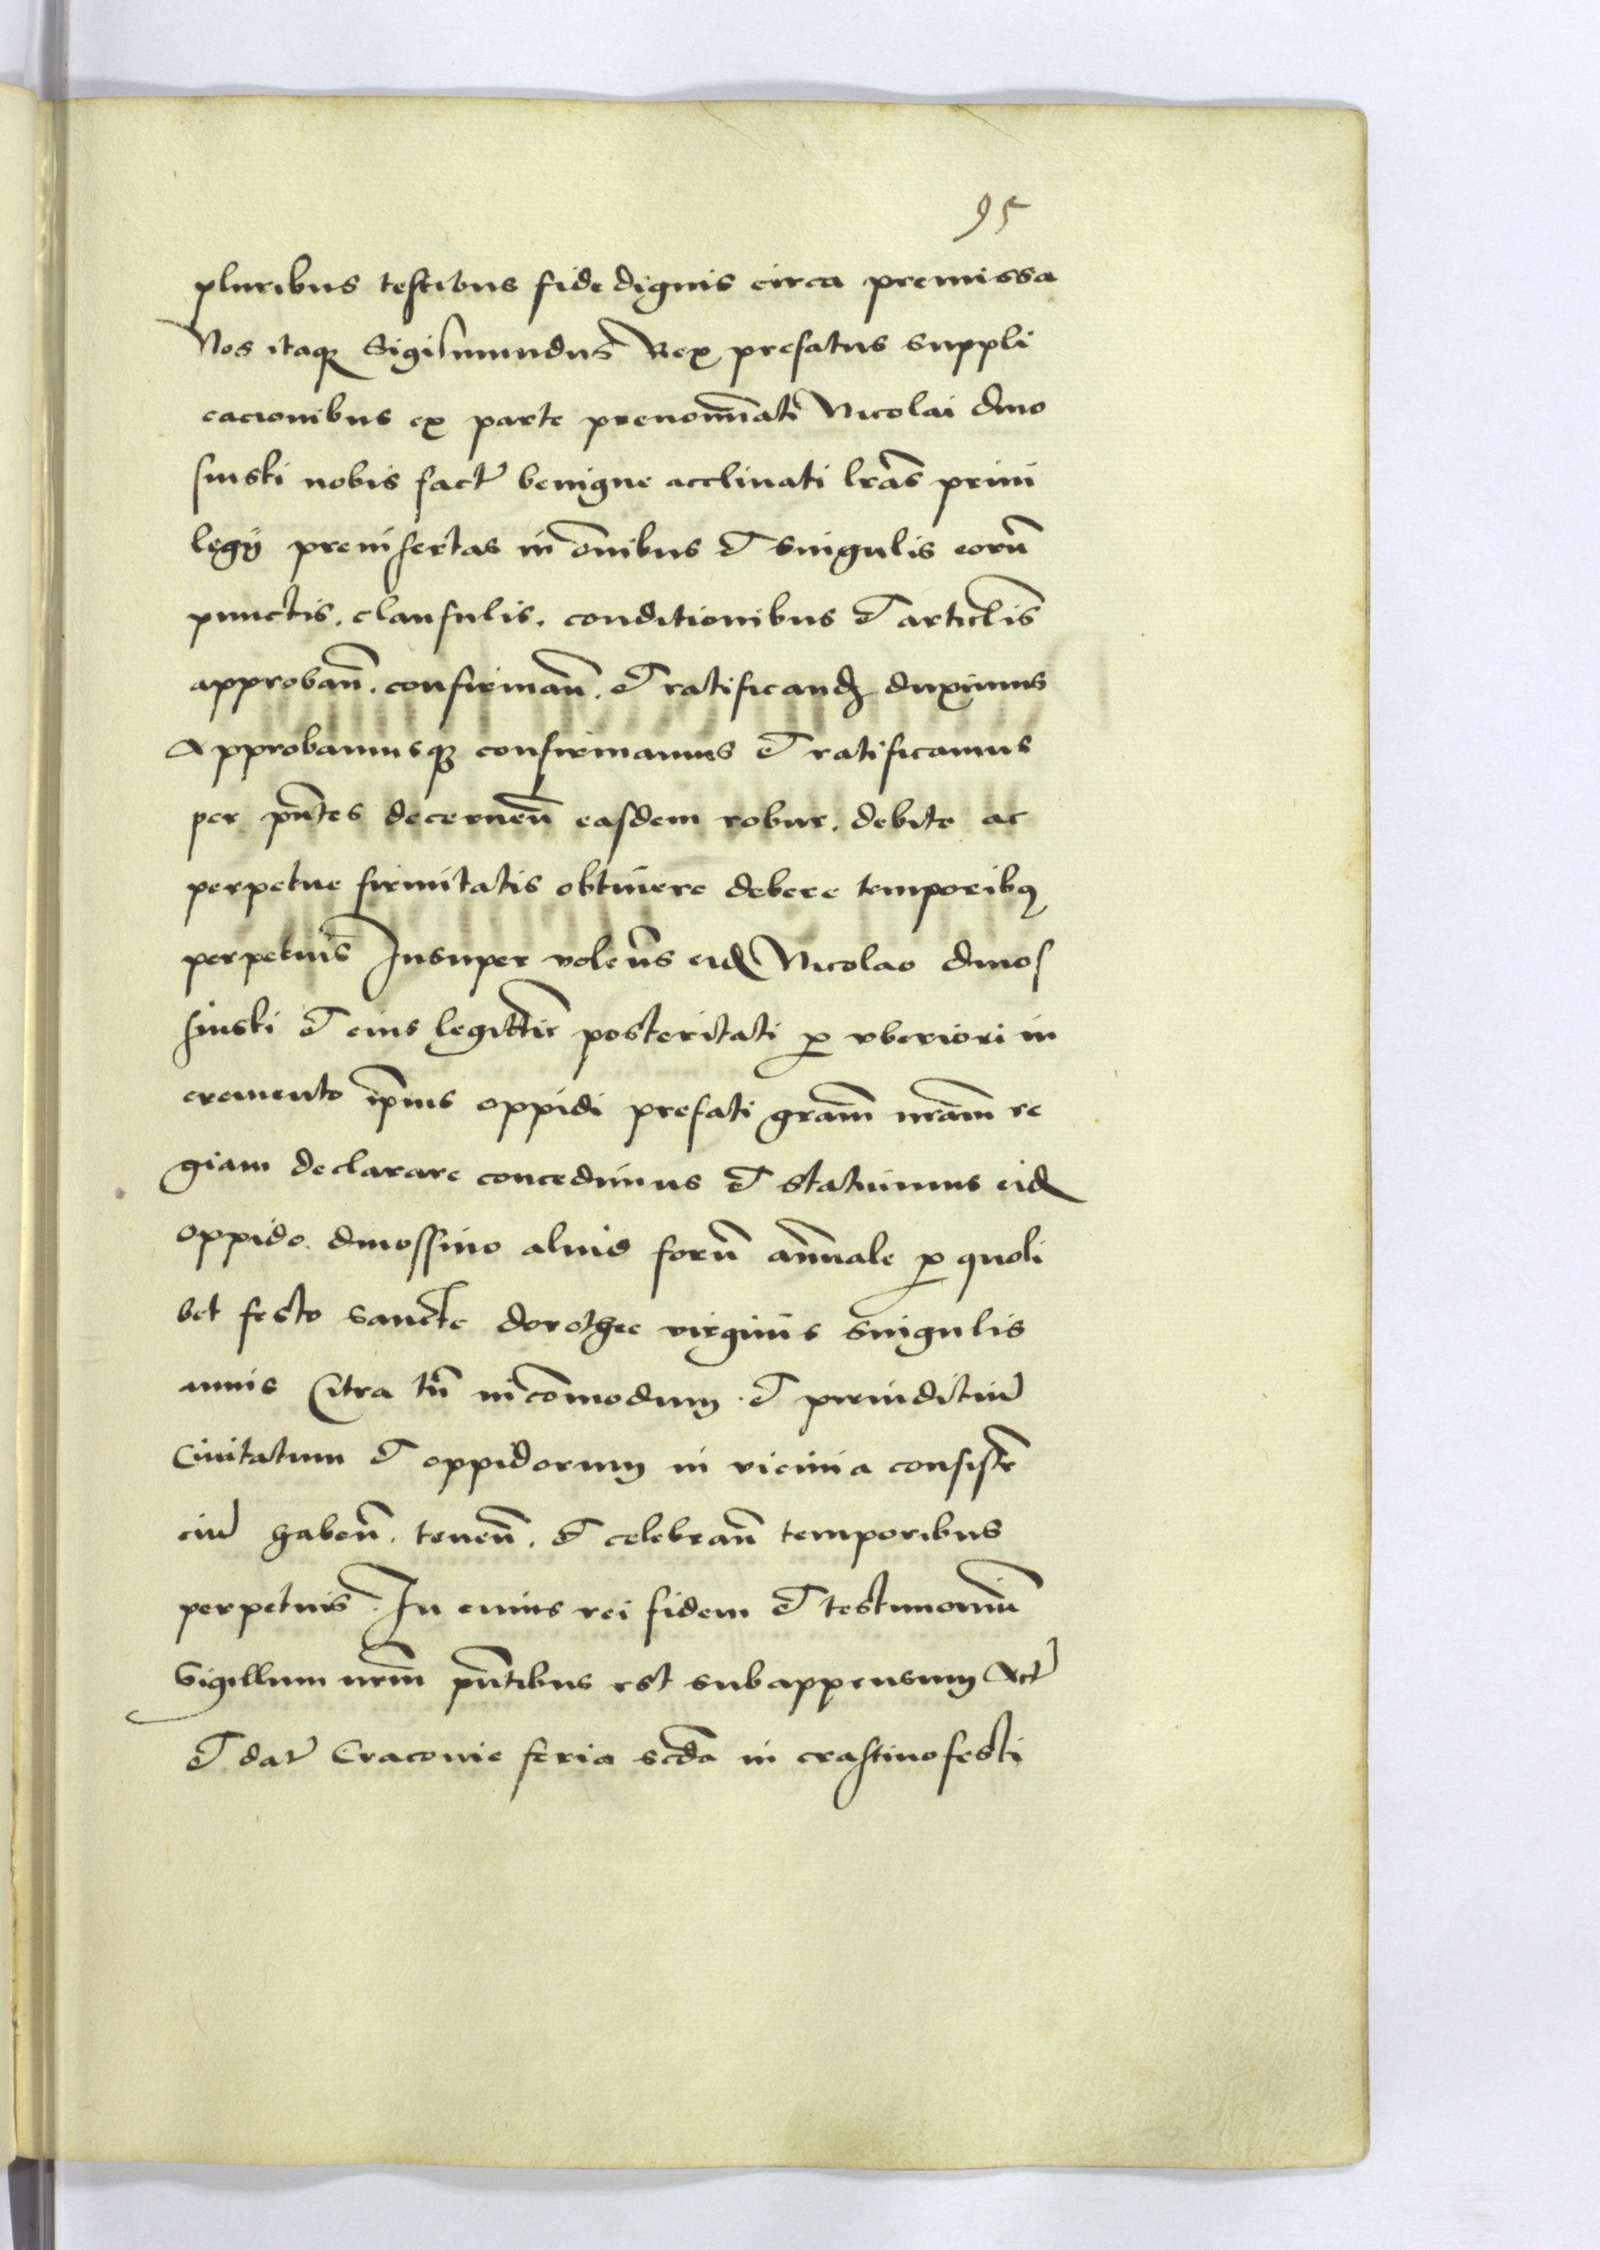 95
pluribus testibus fide dignis circa premissa
Nos itaq Sigismundus Rex prefatus suppli
cacionibus ex parte prenoīati Nicolai dmo
sinski nobis fact benigne acclinati lrās privi
legÿ preinsertas in oīnibus et singulis eorū
punctis. clausulis. conditionibus et articlis
approbañ. confirmañ. et ratificand duximus
Approbamusq confirmamus et ratificamus
per pñtes decerneñ easdem robur. debite ac
perpetue firmitatis obtinere debere temporibq
perpetuis Insuper volens eid Nicolao dmos
sinski et eius legittie posteritati p uberiori in
cremento ipīus oppidi prefati gratiam nrām re
giam declarare concedimus et statuimus eid
oppido dmossino aliud forū añuale p quoli
bet festo sancte dorothee virginis singulis
annis Citra tñ incomodum et preiuditiū
Civitatum et oppidorum in vicinia consisten
ciū habeñ. teneñ. et celebrañ temporibus
perpetuis. In cuius rei fidem et testimoniū
Sigillum nrm̄ pñtibus est subappensum Act
et dat Cracovie feria scda in crastino festi